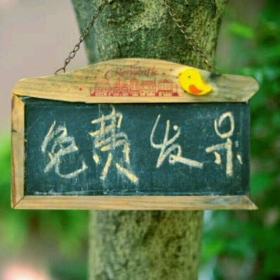 免费发呆